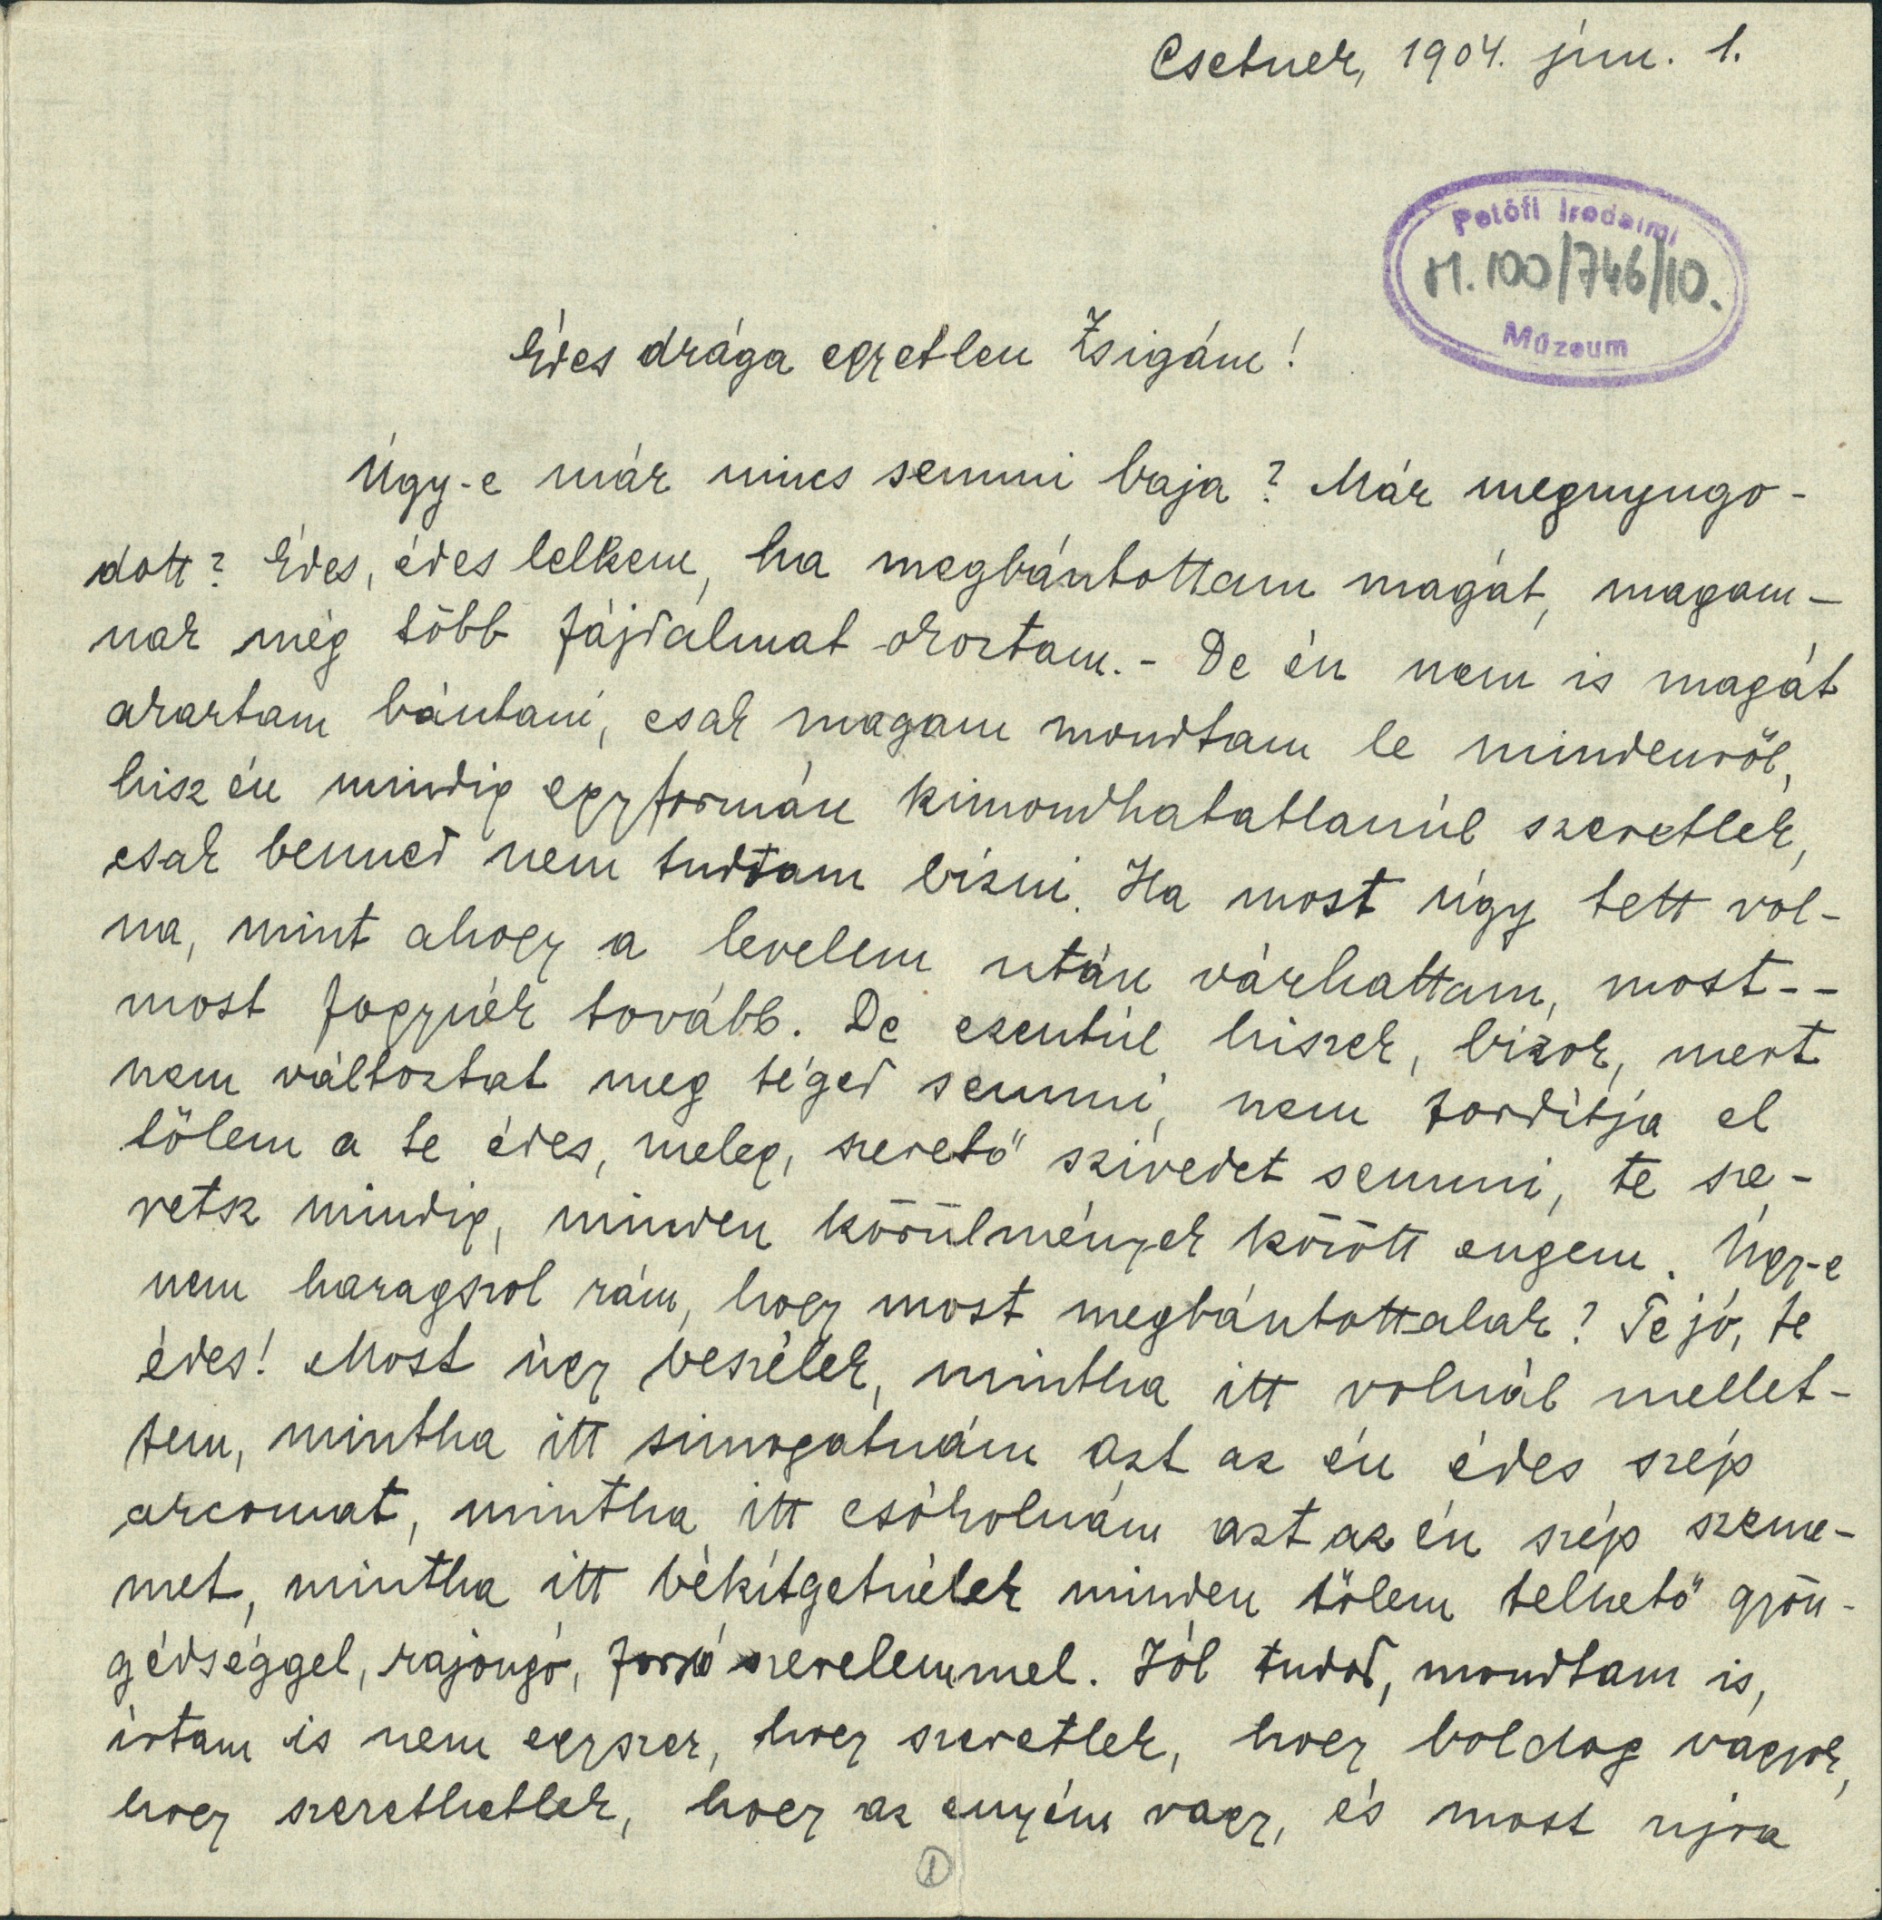 Csetnek, 1904. jún. 1.
Petőfi Irodalmi
M. 100/746/10.
Múzeum
Édes drága egyetlen Zsigám!
Úgy-e már nincs semmi baja? Már megnyugo-
dott? Édes, édes lelkem, ha megbántottam magát, magam-
nak még több fájdalmat okoztam. - De én nem is magát
akartam bántani, csak magam mondtam le mindenről,
hisz én mindig egyformán kimondhatatlanúl szeretlek,
csak benned nem tudtam bízni. Ha most úgy tett vol-
na, mint ahogy a levelem után várhattam, most--
most fogynék tovább. De ezentúl hiszek, bízok, mert
nem változtat meg téged semmi, nem fordítja el
tőlem a te édes, meleg, szerető szívedet semmi, te sze-
retsz mindig, minden körülmények között engem. Úgy-e
nem haragszol rám, hogy most megbántottalak? Te jó, te
édes! Most úgy beszélek, mintha itt volnál mellet-
tem, mintha itt simogatnám azt az én édes szép
arcomat, mintha itt csókolnám azt az én szép szeme-
met, mintha itt békítgetnélek minden tőlem telhető gyön-
gédséggel, rajongó, forró szerelemmel. Jól tudod, mondtam is,
írtam is nem egyszer, hogy szeretlek, hogy boldog vagyok,
hogy szerethetlek, hogy az enyém vagy, és most ujra
1